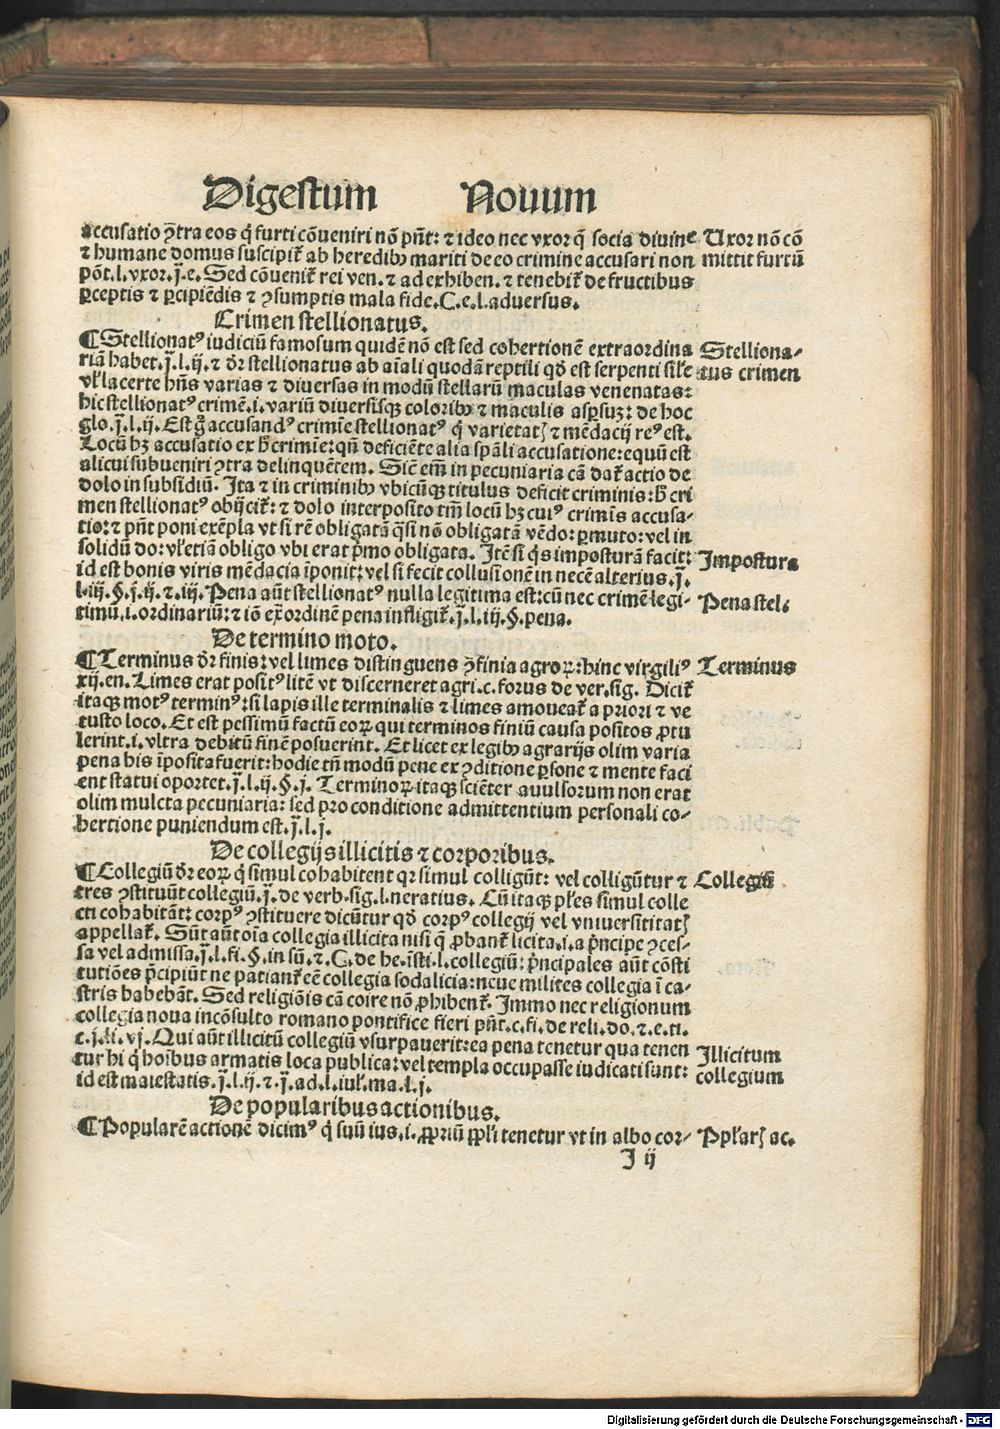 Digestum Nouum
accusatio ꝯtra eos q̄ furti cōueniri nō pn̄t: ⁊ ideo nec vxor q̄ socia diuine Uxor nō cō
⁊ humane domus suscipit᷑ ab heredibꝫ mariti de eo crimine accusari non mittit furtū
pōt. l. vxor. j̄. e. Sed cōuenit᷑ rei ven. ⁊ ad exhiben. ⁊ tenebit᷑ de fructibus
ꝑceptis ⁊ ꝑcipiēdis ⁊ ꝯsumptis mala fide. C. e. l. aduersus.
Crimen stellionatus.
¶ Stellionatꝰ iudiciū famosum quidē nō est sed cohertionē extraordina Stelliona⸗
riā habet. j̄. l. ij. ⁊ dr̄ stellionatus ab aīali quodā reptili qd̄ est serpenti sil'e tus crimen
vl' lacerte hn̄s varias ⁊ diuersas in modū stellarū maculas venenatas:
hic stellionatꝰ crimē. i. variū diuersisqꝫ coloribꝫ ⁊ maculis aspsuꝫ: de hoc
glo. j̄. l. ij. Est g̊ accusandꝰ crimīe stellionatꝰ q̄ varietatꝭ ⁊ mēdacij reꝰ est.
Locū hꝫ accusatio ex h̄ crimīe: qn̄ deficiēte alia sp̄ali accusatione: equū est
alicui subueniri ꝯtra delinquētem. Sic em̄ in pecuniaria cā dat᷑ actio de
dolo in subsidiū. Ita ⁊ in criminibꝫ vbicūqꝫ titulus deficit criminis: h̄ cri
men stellionatꝰ obijcit᷑: ⁊ dolo interposito tm̄ locū hꝫ cuiꝰ crimīs accusa⸗
tio: ⁊ pn̄t poni exēpla vt si rē obligatā q̄si nō obligatā vēdo: ꝑmuto: vel in
solidū do: vl' etiā obligo vbi erat pͥmo obligata. Itē si q̄s imposturā facit: Impostura
id est bonis viris mēdacia īponit: vel si fecit collusionē in necē alterius. j̄.
l. iij. §. j̄. ij. ⁊. iij. Pena aūt stellionatꝰ nulla legitima est: cū nec crimē legi⸗ Pena stel.
timū. i. ordinariū: ⁊ iō exͣordinē pena infligit᷑. j̄. l. iij. §. pena.
De termino moto.
¶ Terminus dr̄ finis: vel limes distinguens ꝯfinia agroꝝ: hinc virgiliꝰ Terminus
xij. en. Limes erat positꝰ litē vt discerneret agri. c. forus de ver. sig. Dicit᷑
itaqꝫ motꝰ terminꝰ: si lapis ille terminalis ⁊ limes amoueat᷑ a priori ⁊ ve
tusto loco. Et est pessimū factū eoꝝ qui terminos finiū causa positos ꝓtu
lerint. i. vltra debitū finē posuerint. Et licet ex legibꝫ agrarijs olim varia
pena his īposita fuerit: hodie tn̄ modū pene ex ꝯditione ꝑsone ⁊ mente faci
ent statui oportet. j̄. l. ij. §. j. Terminoꝝ itaqꝫ sciēter auulsorum non erat
olim mulcta pecuniaria: sed pro conditione admittentium personali co⸗
hertione puniendum est. j̄. l. j.
De collegijs illicitis ⁊ corporibus.
¶ Collegiū dr̄ eoꝝ q̄ simul cohabitent qꝛ simul colligūt: vel colligūtur ⁊ Collegiū
tres ꝯstituūt collegiū. j̄. de verb. sig. l. neratius. Cū itaqꝫ pl'es simul colle
cti cohabitāt: corpꝰ ꝯstituere dicūtur qd̄ corpꝰ collegij vel vniuersititatꝭ
appellat᷑. Sūt aūt oīa collegia illicita nisi q̄ ꝓbant᷑ licita. i. a pͥncipe ꝯces⸗
sa vel admissa. j̄. l. fi. §. in sū. ⁊. C. de he. īsti. l. collegiū: pͥncipales aūt cōsti
tutiōes p̄cipiūt ne patiant᷑ eē collegia sodalicia: neue milites collegia ī ca⸗
stris habebāt. Sed religiōis cā coire nō ꝓhibent᷑. Immo nec religionum
collegia noua incōsulto romano pontifice fieri pn̄t. c. fi. de reli. do. ⁊. e. ti.
c. j. li. vj. Qui aūt illicitū collegiū vsurpauerit: ea pena tenetur qua tenen Illicitum
tur hi q̄ hoībus armatis loca publica: vel templa occupasse iudicati sunt: collegium
id est maiestatis. j̄. l. ij. ⁊. j̄. ad. l. iul'. ma. l. j.
De popularibus actionibus.
¶ Popularē actionē dicimꝰ q̄ suū ius. i. ꝓpriū ppl'i tenetur vt in albo cor⸗ Ppl'arꝭ ac.
I ij
Digitalisierung gefördert durch die Deutsche Forschungsgemeinschaft - DFG